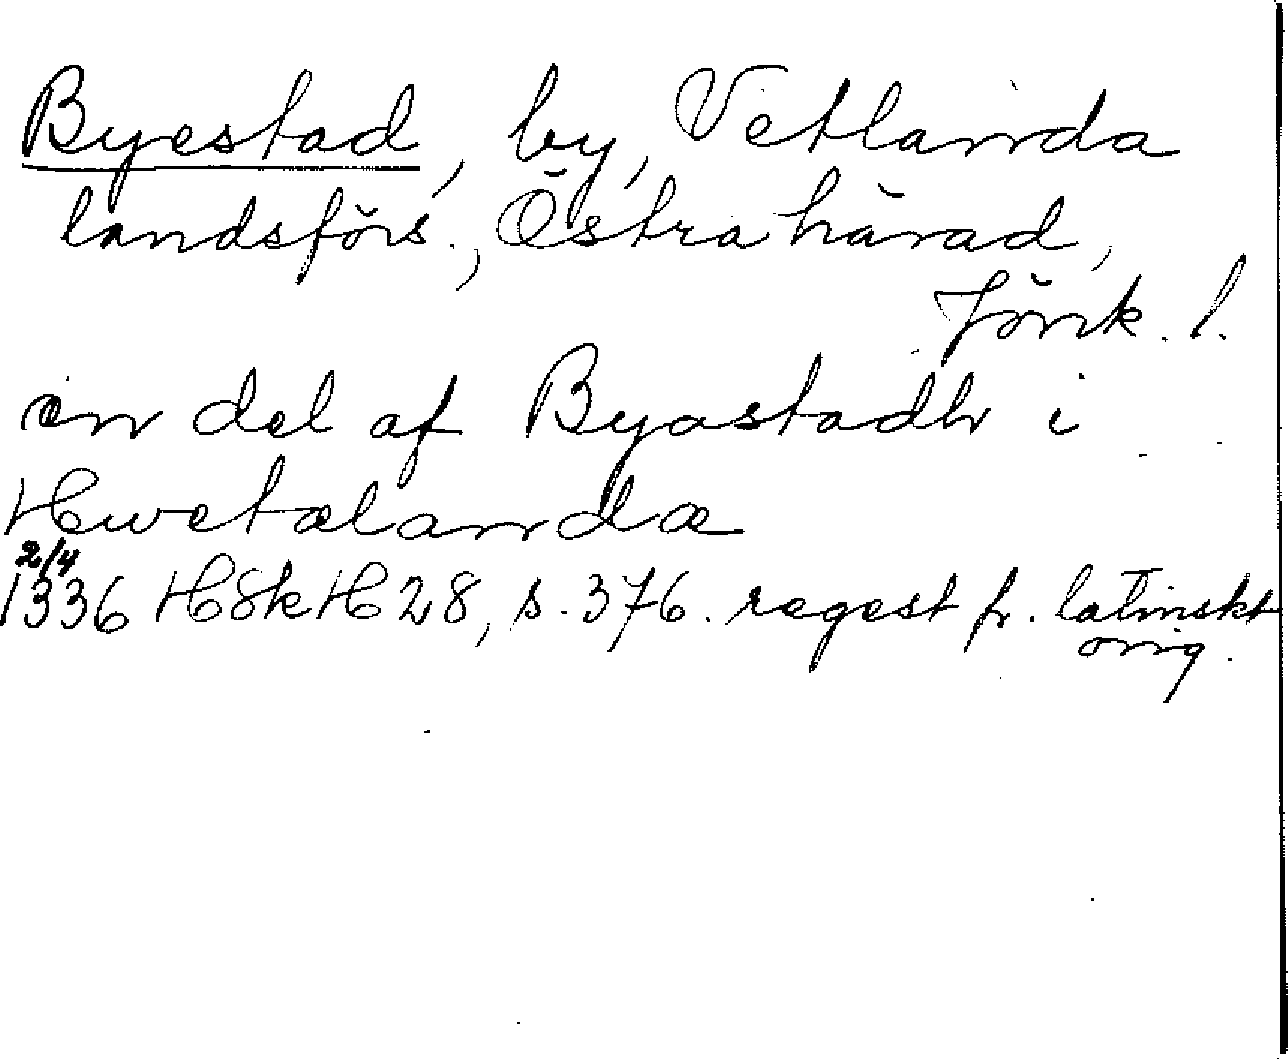 Byestad, by, Vetlanda
landsförs., Östra härad,
Jönk. l.
en del af Byastadh i
Hwetælandæ
2/4
1336 HSkH 28, s. 376. regest fr. latinskt
orig.